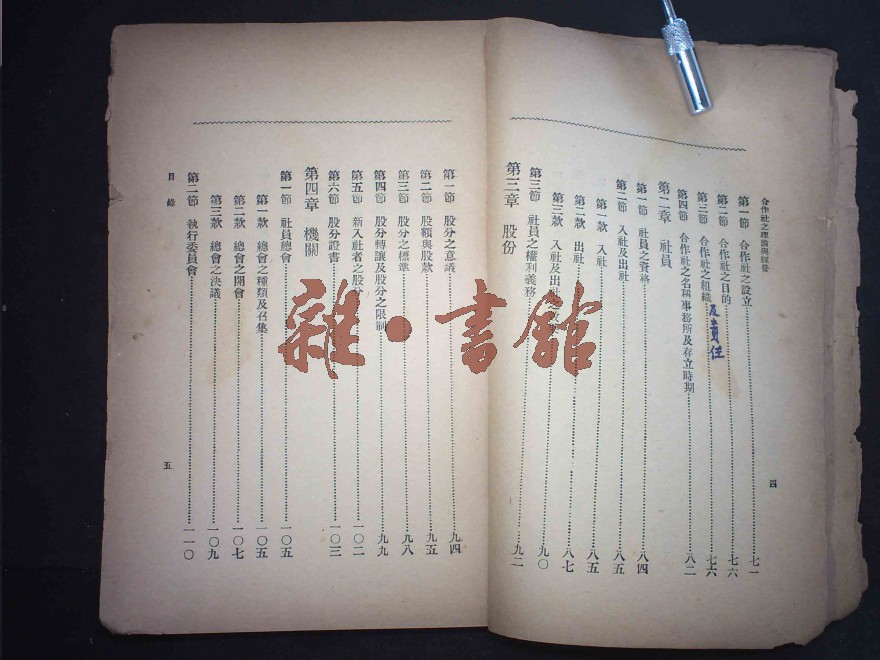 合作社之理論與經營
第一節 合作社之設立 七一
第二節 合作社之目的 七六
第三節 合作社之組織及責任 七六
第四節 合作社之名稱事務所及存立時期 八二
第二章 社員
第一節 社員之資格 八四
第二節 入社及出社 八五
第一款 入社 八五
第二款 出社 八七
第三款 入社及出社 九〇
第三節 社員之權利義務 九二
第三章 股份
四
第一節 股分之意義 九四
第二節 股額與股款 九五
第三節 股分之標準 九八
第四節 股分轉讓及股分之限制 九九
第五節 新入社者之股分 一〇二
第六節 股分證書 一〇三
第四章 機關
第一節 社員總會 一〇五
第一款 總會之種類及召集 一〇五
第二款 總會之開會 一〇七
第三款 總會之決議 一〇九
第二節 執行委員會 一一〇
目錄
五
雜·書館